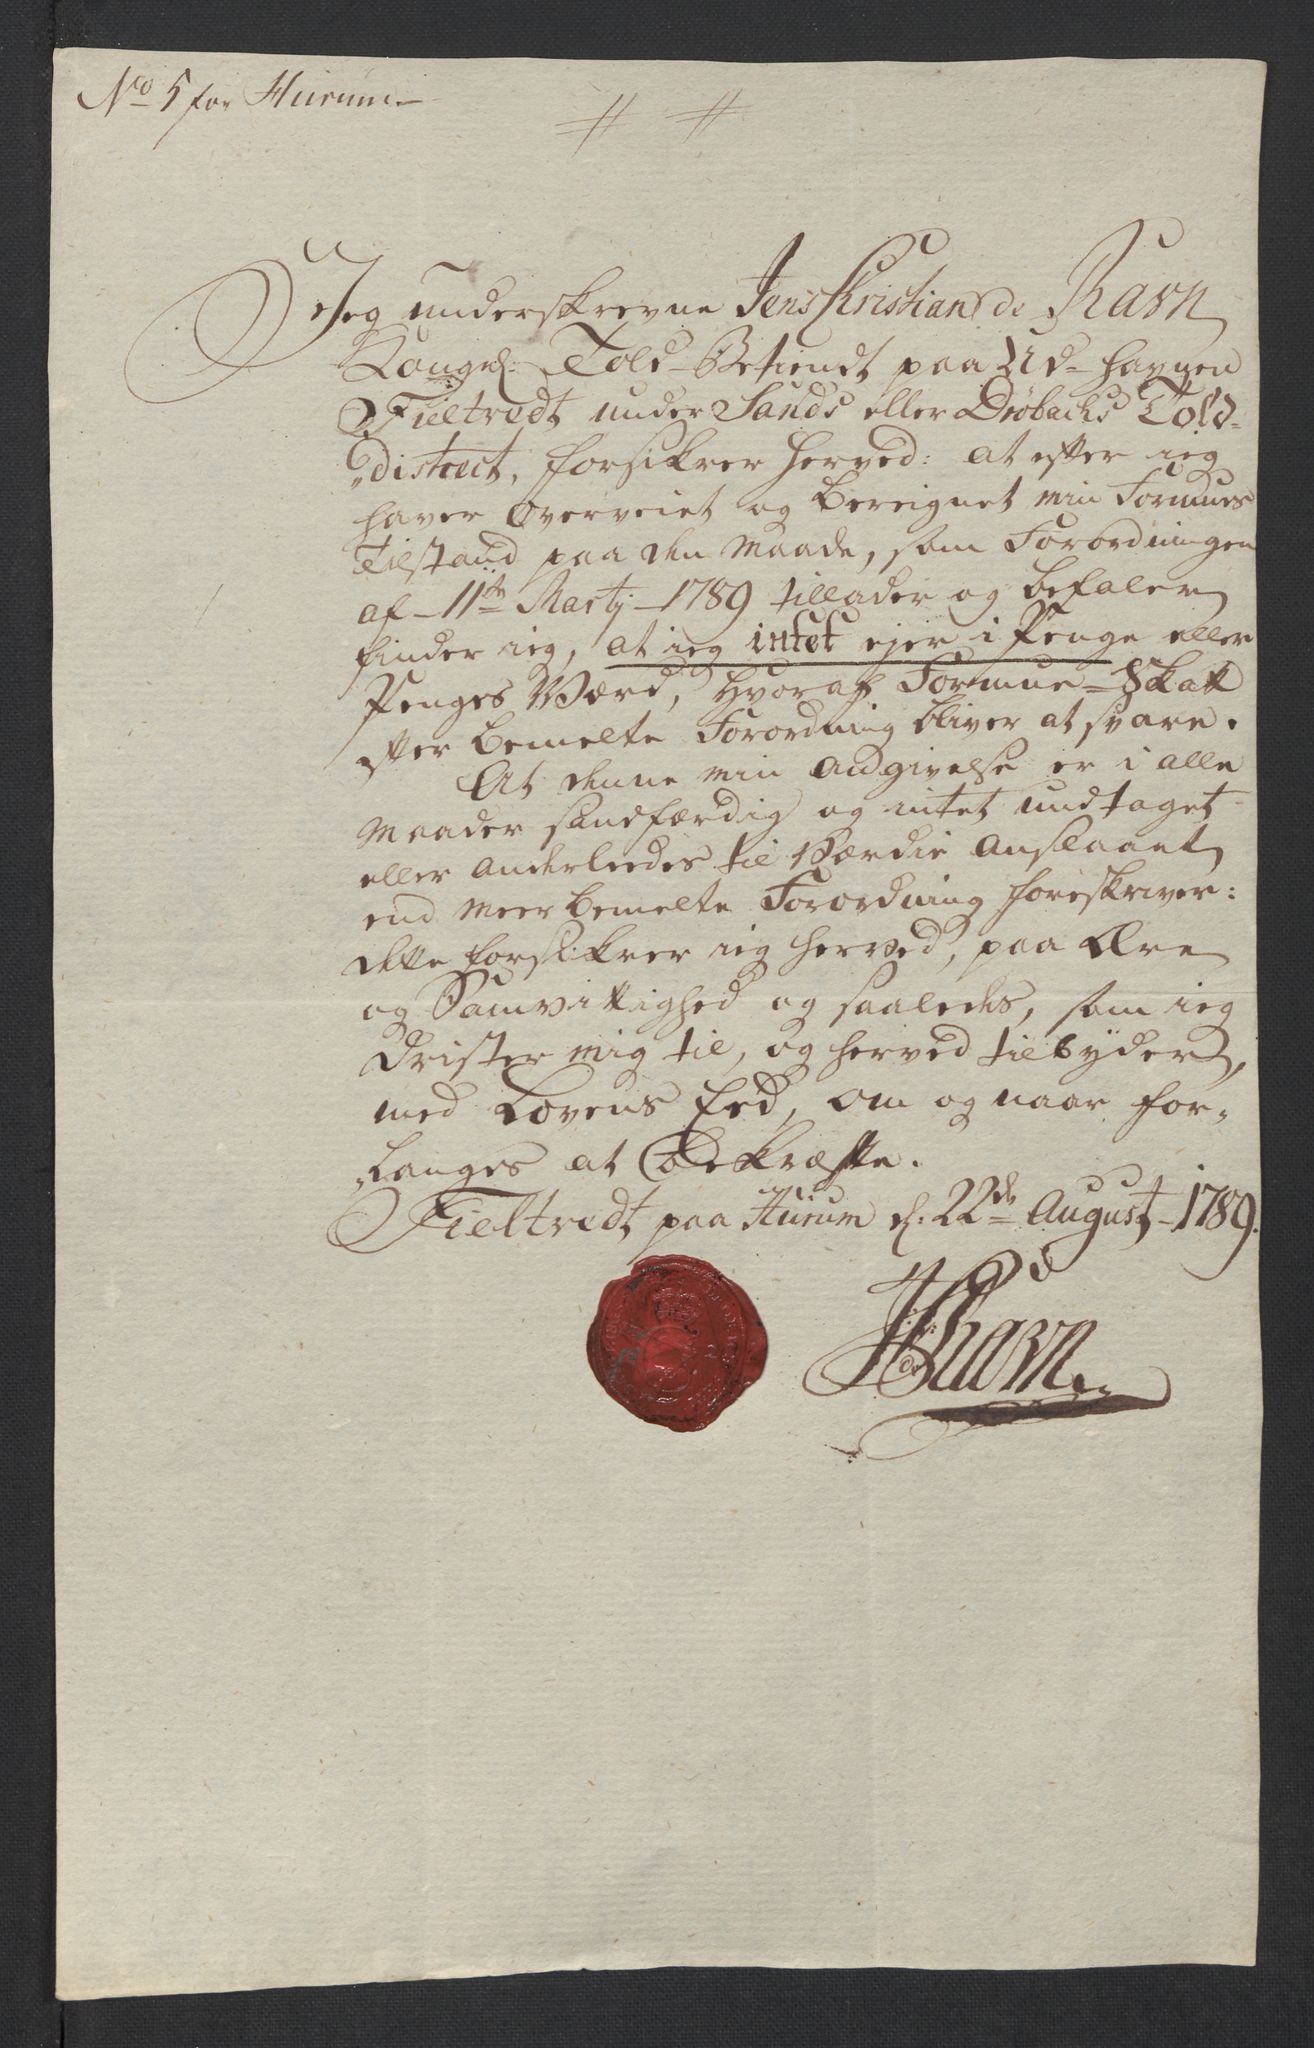 No 5 for Hurum
Jeg underskrevne Jens Kristian de Ravn
Kongel: Told-Betient paa Ud-havnen
Fieltvedt under Sands eller Drøbachs Told-
district, forsikrer herved: at efter ieg
haver overveiet og bereignet min Formues
Tilstand paa den Maade, som Forordningen
af 11te Martj 1789 tillader og befaler
finder ieg, at ieg intet ejer i Penge eller
Penges Værd, hvoraf Formue-Skatt
efter bemelte Forordning bliver at svare.
At denne min Angivelse er i alle
Maader sandfærdig og intet undtaget
eller anderleedes til Værdie anslaaet
end meerbemelte Forordning foreskriver:
dette forsikrer ieg herved, paa Ære
og Samvittighed og saaledes, som ieg
drister mig til, og herved tilbyder,
med Lovens Eed, om og naar for-
langes at bekræfte.
Fieltvedt paa Hurum d: 22de August 1789.
JK de Ravn